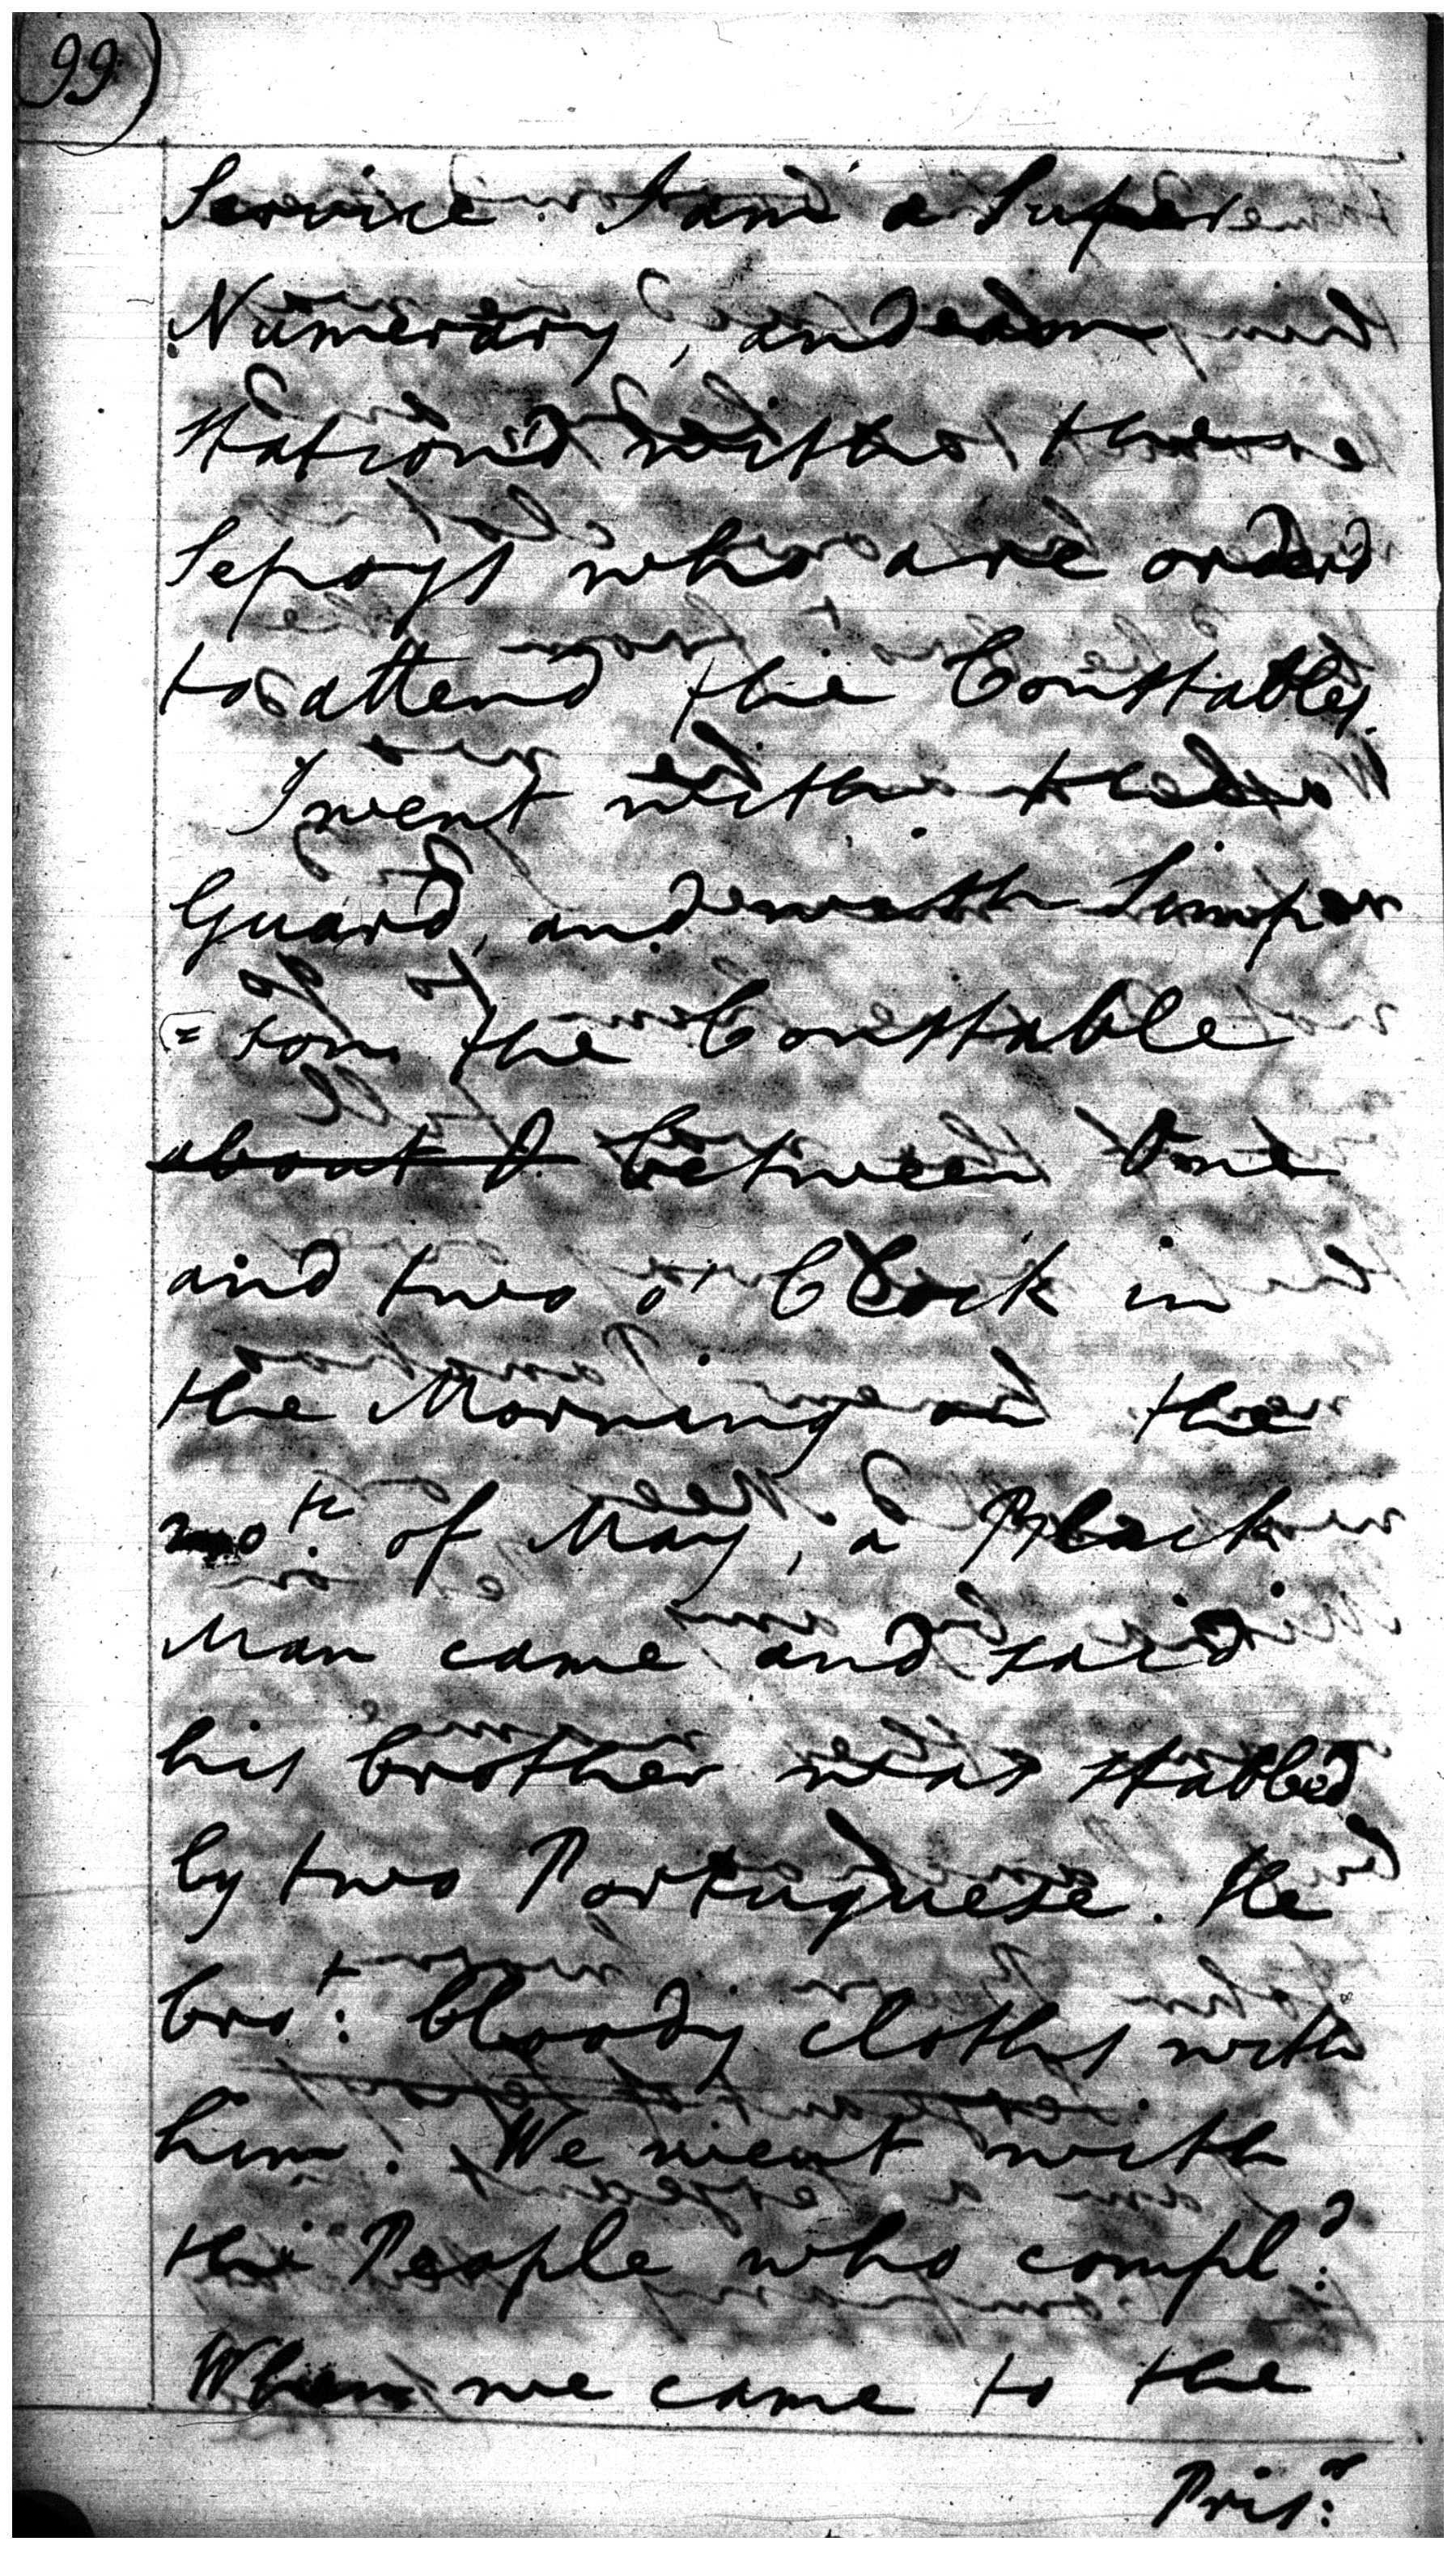 99
Service. I am a Super
Numerary, and am
Station'd with three
Sepoys who are order'd
to attend the Constables.
I went with the
Guard, and with Simpson
= son the Constable
about 2 between One
and two o' Clock in
the Morning on the
of May, a Black
Man came and said
his brother was stabbed
by two Portuguese. He
bro.t bloody cloths with
him. We went with
the People who compl.d
When we came to the
Pris.r